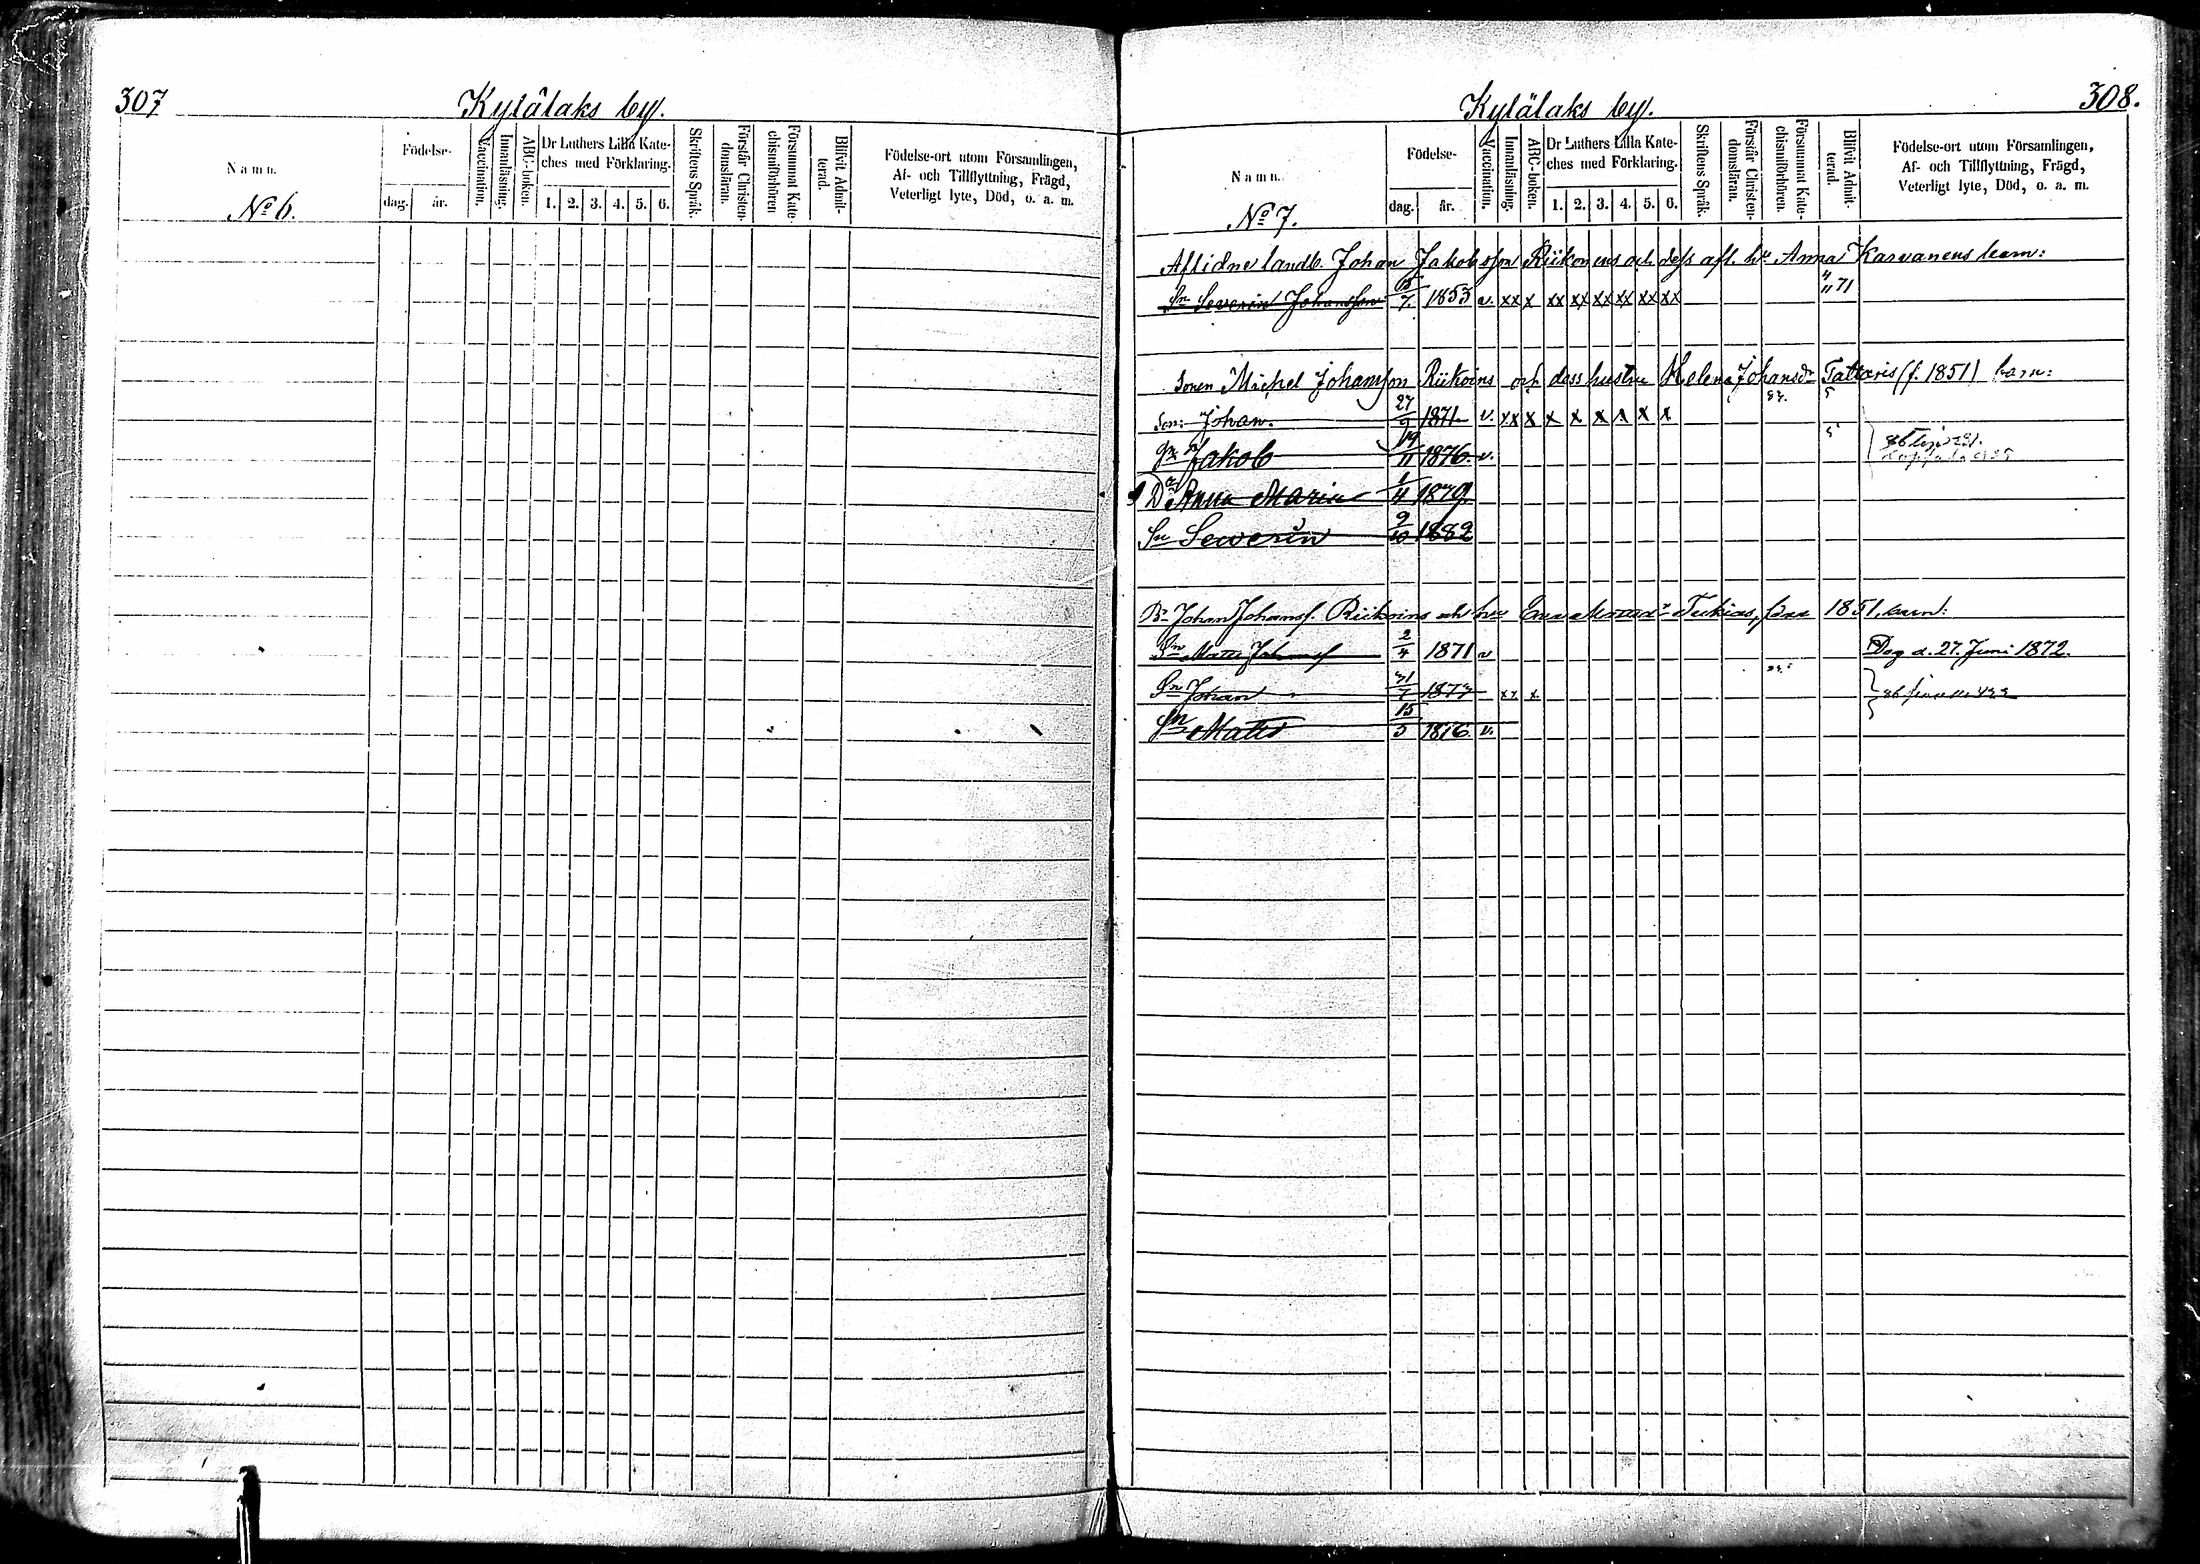 307
Kylälaks by.
Namn.
Födelse-
dag.
år.
Vaccination.
Innanläsning.
ABC-boken.
Dr Luthers Lilla Kate-
ches med Förklaring.
1. 2. 3. 4. 5. 6.
Skriftens Språk.
Förstår Christen-
domsläran.
Försummat Kate-
chismiförhören
Blifvit Admit-
terad.
Födelse-ort utom Församlingen,
Af- och Tillflyttning, Frägd,
Veterligt lyte, Död, o. a. m.
No 6.
Kylälaks by.
308.
Namn.
Födelse-
dag.
år.
Vaccination.
Innanläsning.
ABC-boken.
Dr Luthers Lilla Kate-
ches med Förklaring.
1. 2. 3. 4. 5. 6.
Skriftens Språk.
Förstår Christen-
domsläran.
Försummat Kate-
chismiförhören.
Blifvit Admit-
terad.
Födelse-ort utom Församlingen,
Af- och Tillflyttning, Frägd,
Veterligt lyte, Död, o. a. m.
No 7.
Aflidne landb. Johan Jakobsson Riikonens och dess afl. hu Anna Karvanens barn:
Sn Severin Johansson 15/7 1853 v. xx x xx xx xx xx xx xx 71
Sonen Michel Johansson Riikoins och dess hustru Helena Johansdr Tattaris (f. 1851) barn:
Son: Johan. 27/9 1871 v. xx x x x x x x x
Sn Jakob 19/11 1876 v.
Dr Anna Maria 1/4 1879
Sn Sewerin 9/10 1882
Br Johan Johanss. Riikoins och hu 1851, barn:
Sn Matts Johanss 2/4 1871 v Dog d. 27. Juni 1872.
Sn Johan 31/7 1873 xx x
Sn Matts 15/5 1876 v.